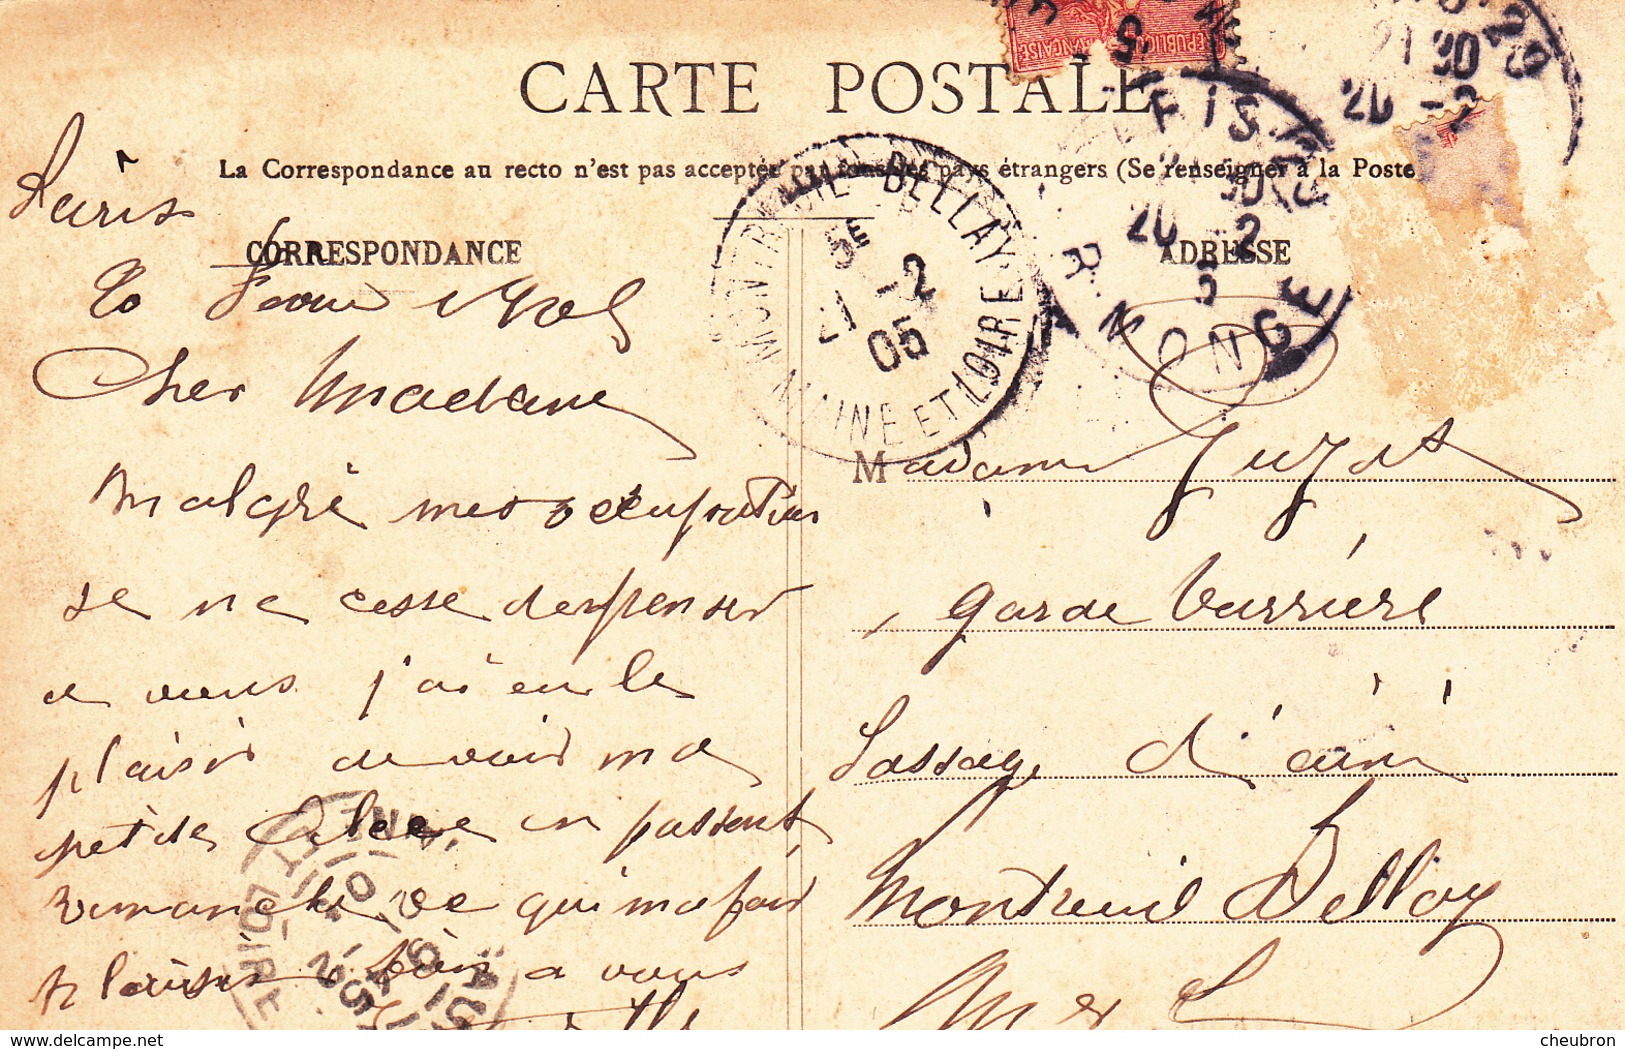 CARTE POSTALE
La Correspondance au recto n'est pas acceptée par tous les pays étrangers (Se renseigner à la Poste
CORRESPONDANCE
ADRESSE
REPUBLIQUE FRANÇAISE
MONTREUIL-BELLAY
MAINE ET LOIRE
5E
21 -2
05
PARIS
20 -2
5
R. MONGE
Paris
20
Cher Madame
Malgré mes occupations
je ne cesse de penser
a vous j'ai eu le
plaisir de voir ma
petite Alice en passent
dimanche se qui ma fair
plaisir bien a vous
Madame
garde barrière
Passage d'
Montreuil Bellay
M et L
hello-delcampe.net
cheubron